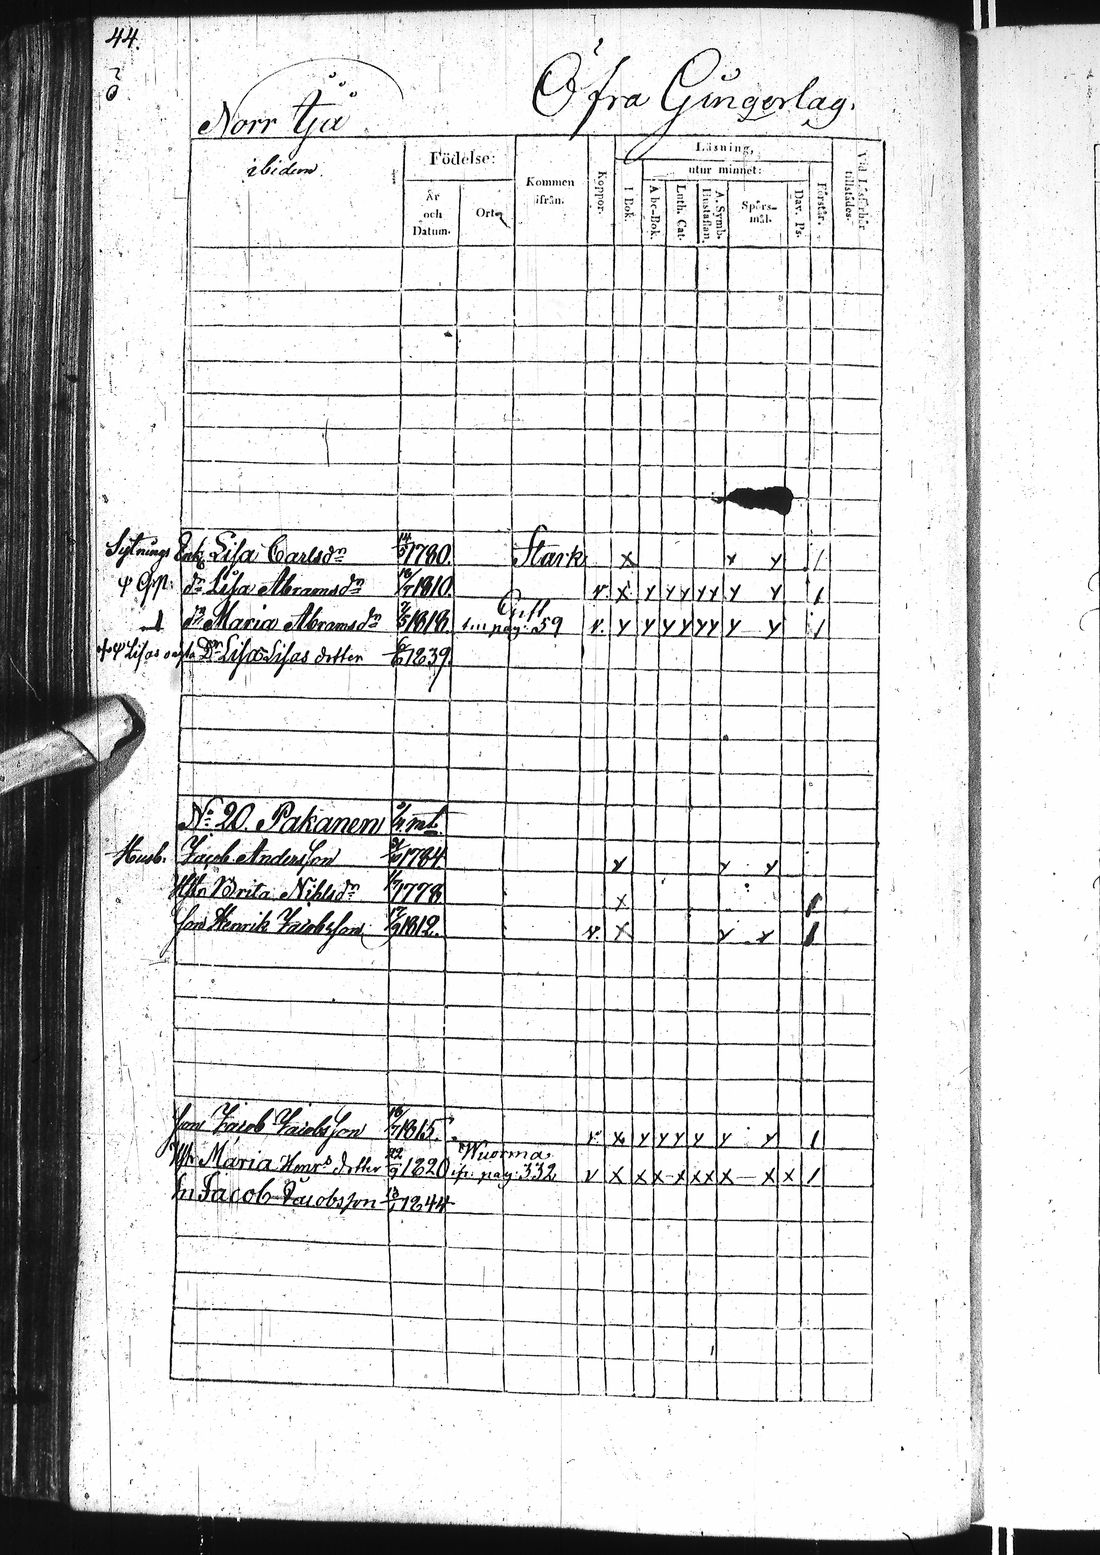 44.
Öfra Gungerlag.
Norr
ibidem.
Födelse:
År och Datum.
Ort
Kommen ifrån.
Koppor.
Läsning,
I Bok.
utur minnet:
Abc-Bok.
Luth. Cat.
A. Symb. Hustaflan.
Spörs-mål.
Dav. Ps.
Förstår.
Vid Läsförhör tillstädes.
Sytnings Enk. Lisa Carlsdr 14/5 1780. Stark x y y 1
dr Lisa Abramsdr 1810. v. x y y y y y y y 1
dr Maria Abramsdr 1818. pag: 59 v. y y y y y y y y 1
Lisas oäkta Dr Lisa Lisas dotter 1839.
No 20. Pakanen mtl.
Husb. Jacob Andersson 1784 y y y
Hstr Brita Nihlsdr 1778 x 1
Son Henrik Jacobsson 17/9 1812. v. x y y 1
Son Jacob Jacobsson 1815. v. x y y y y y y 1
Wuorma
Maria Henrs dotter 22/9 1820 fr. pag: 332 v x x x x x x x x x 1
Sn Jacob Jacobsson 13/1 1844